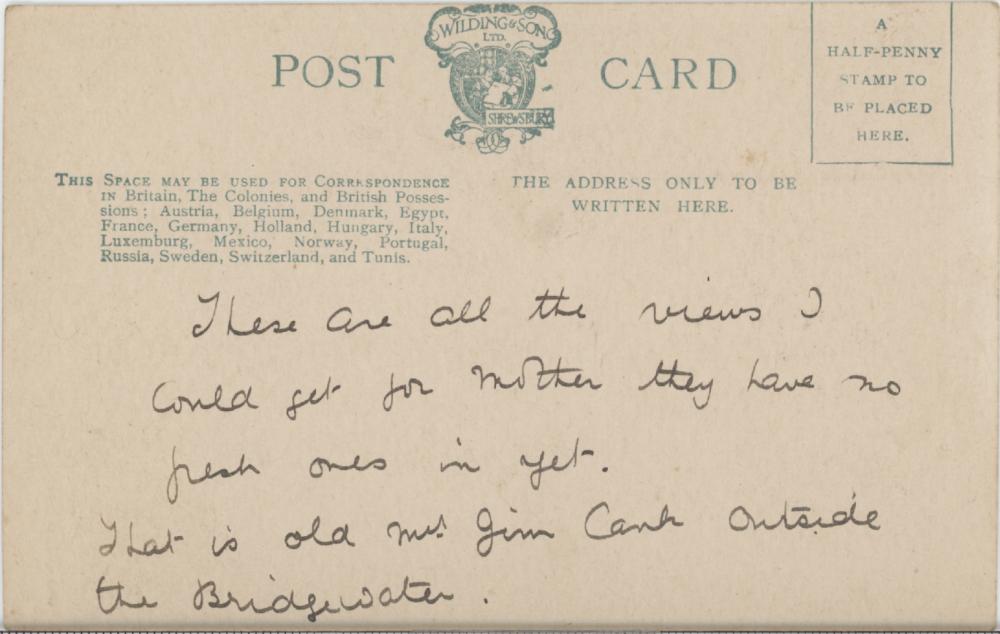 WILDING & SON
LTD.
SHREWSBURY
POST CARD
A
HALF-PENNY
STAMP TO
BE PLACED
HERE.
THIS SPACE MAY BE USED FOR CORRESPONDENCE
IN Britain, The Colonies, and British Posses-
sions; Austria, Belgium, Denmark, Egypt,
France, Germany, Holland, Hungary, Italy,
Luxemburg, Mexico, Norway, Portugal,
Russia, Sweden, Switzerland, and Tunis.
THE ADDRESS ONLY TO BE
WRITTEN HERE.
These are all the views I
Could get for Mother they have no
fresh ones in yet.
That is old Mrs Jim Cank outside
the Bridgewater.